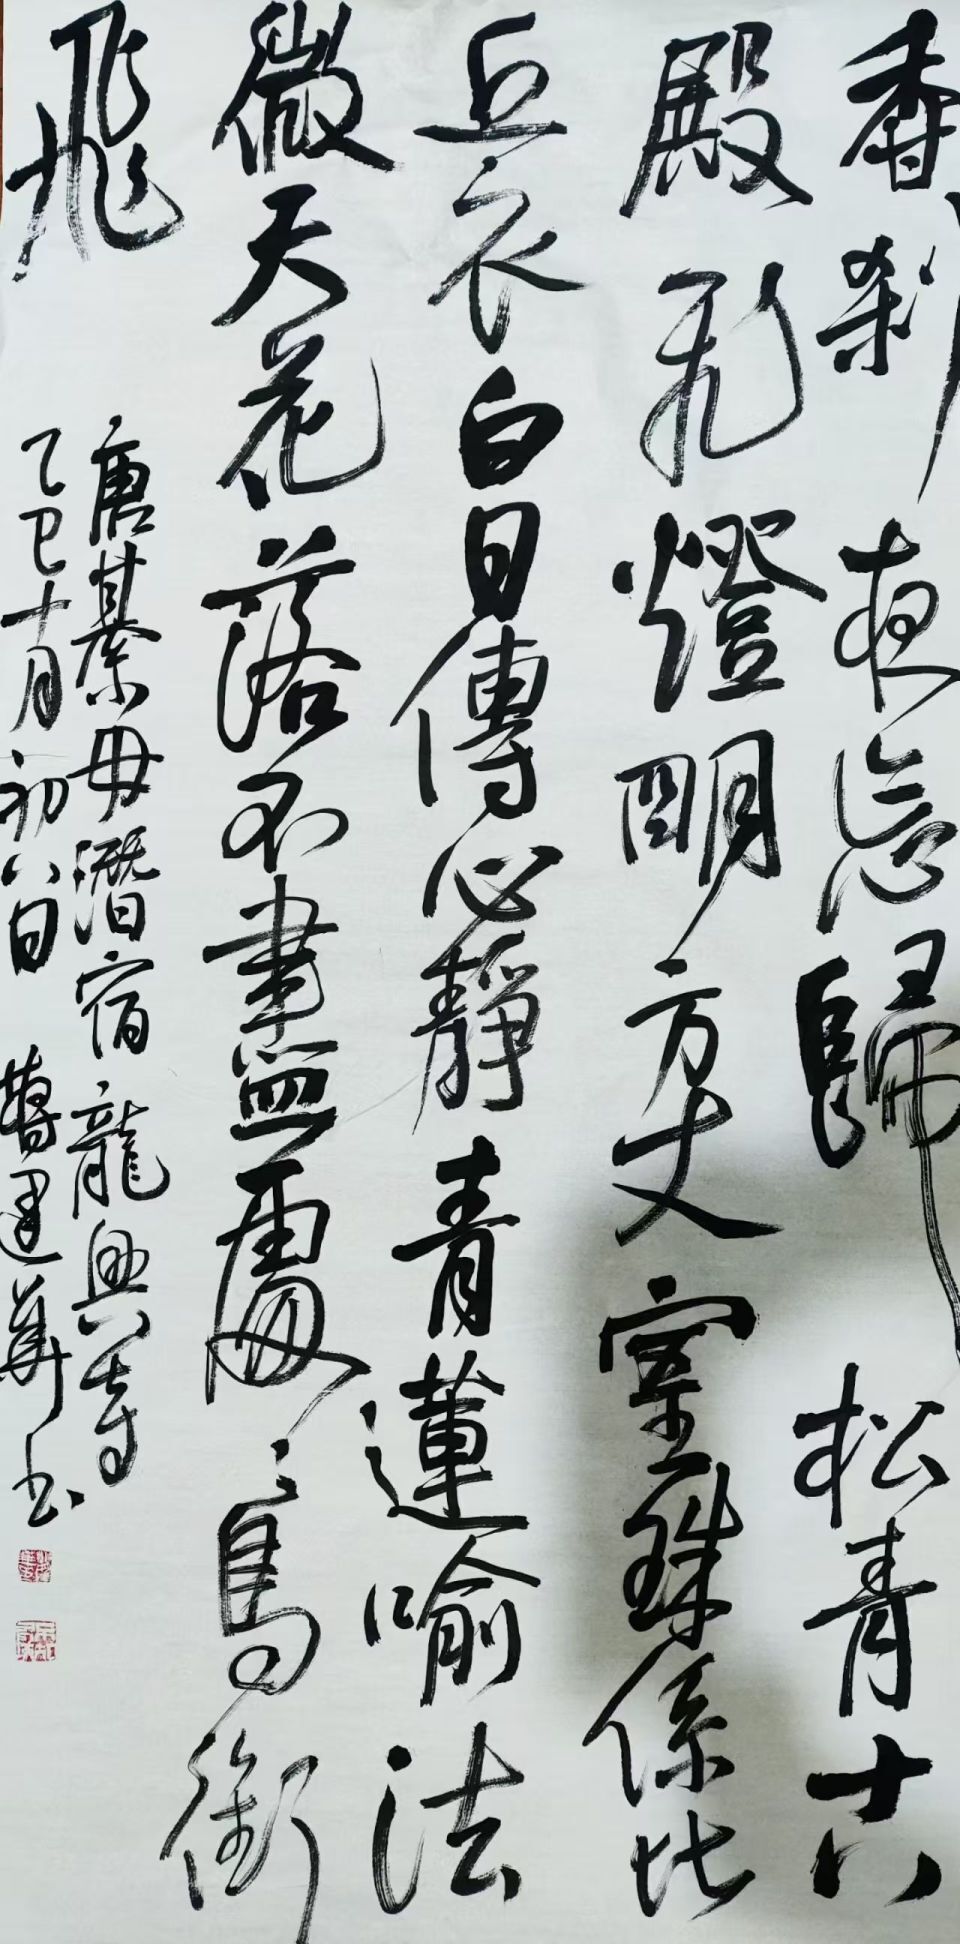 香刹夜忘歸松青古
殿扉燈明方丈室珠係比
丘衣白日傳心靜青蓮喻法
微天花落不盡處々鳥銜
飛
唐綦毋潛宿龍興寺
乙巳十月初八日 曹建華书